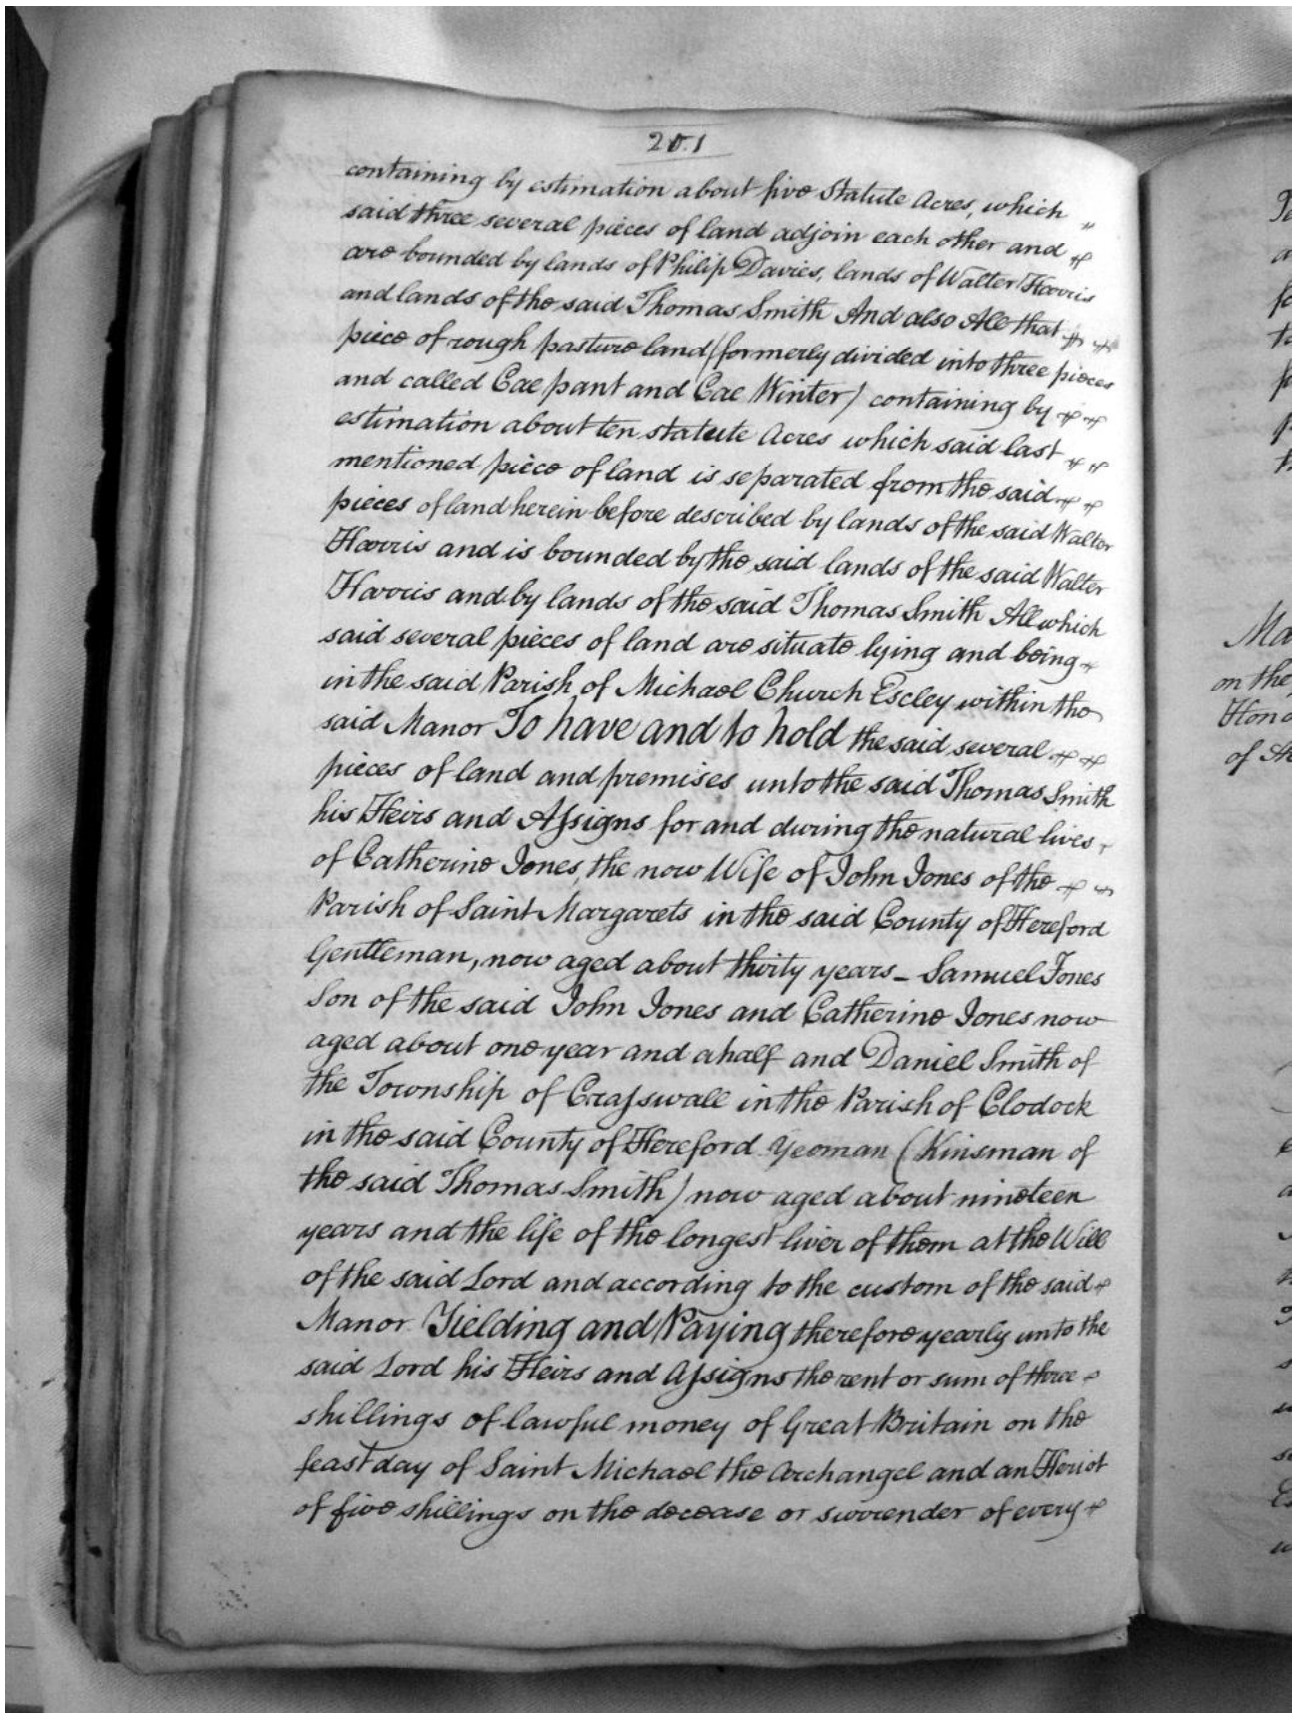 201
containing by estimation about five Statute Acres, which "
said three several pieces of land adjoin each other and
are bounded by lands of Philip Davies, lands of Walter Harris
and lands of the said Thomas Smith And also All that
piece of rough pasture land (formerly divided into three pieces
and called Cae pant and Cae Winter) containing by
estimation about ten statute Acres which said last
mentioned piece of land is separated from the said
pieces of land herein before described by lands of the said Walter
Harris and is bounded by the said lands of the said Walter
Harris and by lands of the said Thomas Smith All which
said several pieces of land are situate lying and being
in the said Parish of Michael Church Escley within the
said Manor To have and to hold the said several
pieces of land and premises unto the said Thomas Smith
his Heirs and Assigns for and during the natural lives
of Catherine Jones, the now Wife of John Jones of the
Parish of Saint Margarets in the said County of Hereford
Gentleman, now aged about thirty years - Samuel Jones
Son of the said John Jones and Catherine Jones now
aged about one year and a half and Daniel Smith of
the Township of Crasswall in the Parish of Clodock
in the said County of Hereford Yeoman (Kinsman of
the said Thomas Smith) now aged about nineteen
years and the life of the longest liver of them at the Will
of the said Lord and according to the custom of the said
Manor Yielding and Paying therefore yearly unto the
said Lord his Heirs and Assigns the rent or sum of three
shillings of lawful money of Great Britain on the
feast day of Saint Michael the Archangel and an Heriot
of five shillings on the decease or surrender of every
Ma
on the
Hono
of